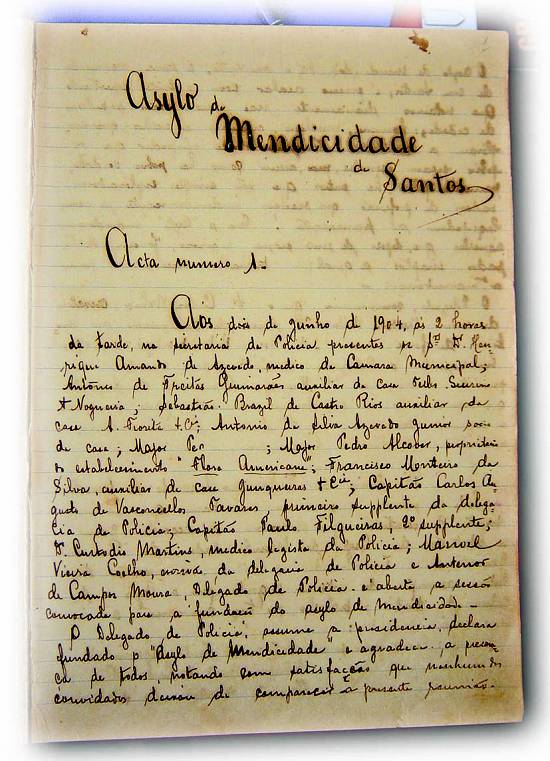 Asylo de
Mendicidade
de
Santos
Acta numero 1.
Aos dois de Junho de 1904, ás 2 horas
da tarde, na secretaria da Policia presentes os Srs. D. Hen-
rique Armando de Azevedo, medico da Camara Municipal;
Antonio de Freitas Guimarães auxiliar da casa
& Nogueira; Sebastião Brazil de Castro Rios auxiliar da
casa A. Fiorita & Co; Antonio da Silva Azevedo Junior socio
da casa; Major Per ; Major Pedro Alcover, proprietario
do estabelecimento "Flora Americana"; Francisco Monteiro da
Silva, auxiliar da casa Junqueiras & Cia; Capitão Carlos Au-
gusto de Vasconcellos Tavares, primeiro supplente da delega-
cia de Policia; Capitão Paulo Filgueiras, 2º supplente;
D. Custodio Martins, medico legista da Policia; Manoel
Vieira Coelho, escrivão da delegacia de Policia e Antenor
de Campos Moura, Delegado de Policia é aberta a sessão
convocada para a fundação do asylo de Mendicidade.
O Delegado de Policia, assume a presidencia, declara
fundado o "Asylo de Mendicidade" e agradece a presen-
ça de todos, notando com satisfacção que nenhum dos
convidados deixou de comparecer á presente reunião.